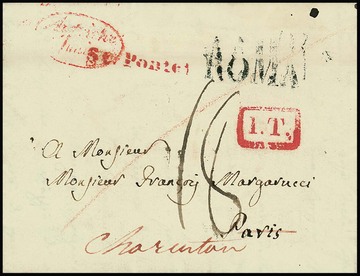 ROMA
I.T.
18
A Monsieur
Monsieur François Margarucci
Paris
Charenton